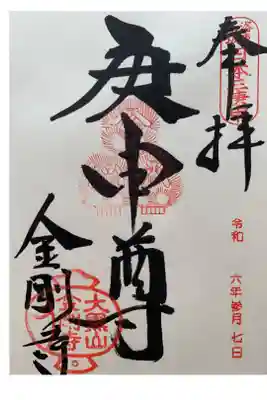 奉拝
庚申尊
令和 六年参月七日
金剛寺
大黒山
金剛寺